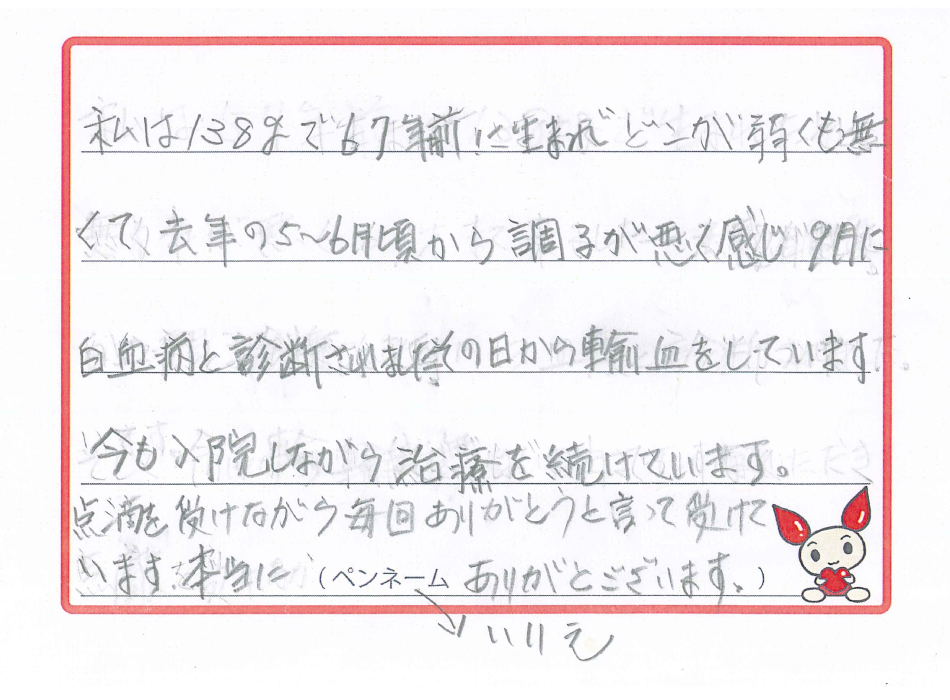 私は138gまで67年前に生まれどこが弱くも無
くて去年の5～6月頃から調子が悪く感じ9月に
白血病と診断されましたその日から輸血をしています
今も入院しながら治療を続けています。
点滴を受けながら毎回ありがとうと言って受けて
います。本当に（ペンネーム ありがとございます。）
いりえ